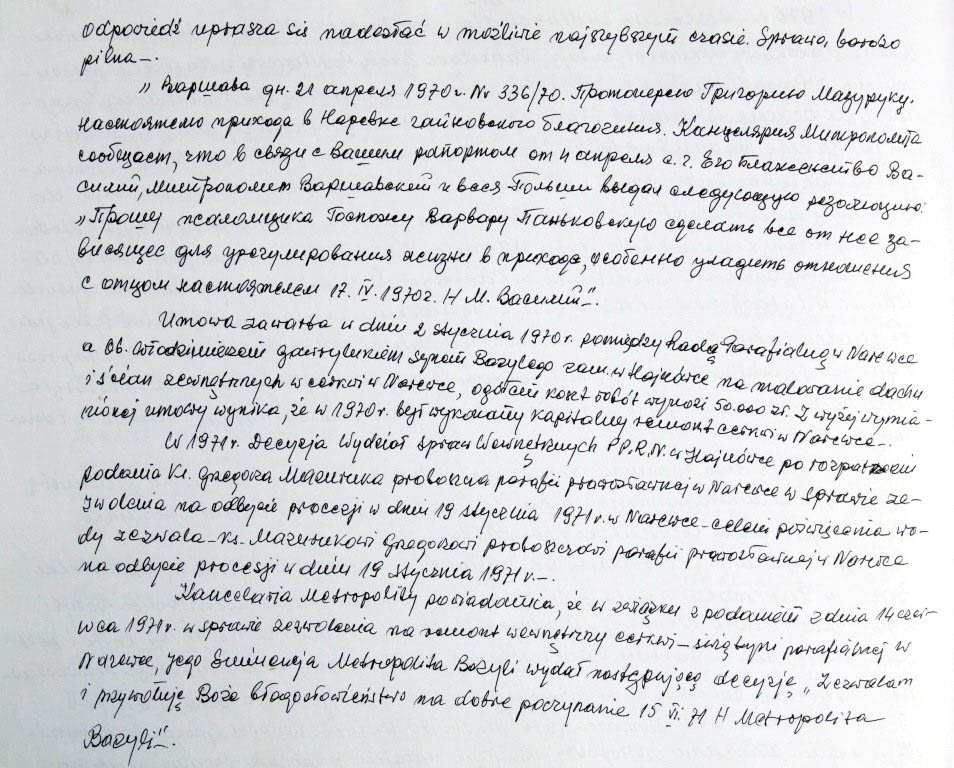 odpowiedź uprasza się nadesłać w możliwie najszybszym czasie. Sprawa bardzo
pilna-.
„Варшава дн. 21 апреля 1970 г. Nr 336/70. Протоиерею Григорию Мазуруку.
настоятелю прихода в Наревке гайновского благочиния. Канцелярия Митрополита
сообщает, что в связи с Вашим рапортом от 4 апреля с.г. Его Блаженство Ва-
силий, Митрополит Варшавский и всея Польши выдал следующую резолюцию:
„Прошу псаломщика Госпожу Варвару Паньковскую сделать все от нее за-
висящее для урегулирования жизни в приходе, особенно уладить отношения
с отцом настоятелем 17. IV. 1970г. Н М. Василий".
Umowa zawarta w dniu 2 stycznia 1970 r. pomiędzy Radą Parafialną w Narewce
a Ob. Włodzimierzem Gawrylukiem synem Bazylego zam. w Hajnówce na malowanie dachu
i ścian zewnętrznych w cerkwi w Narewce, ogółem koszt robót wynosi 50.000 zł. Z wyżej wymie-
nionej umowy wynika, że w 1970 r. był wykonany kapitalny remont cerkwi w Narewce-.
W 1971 r. Decyzja Wydział Spraw Wewnętrznych P.P.R.N. w Hajnówce po rozpatrzeniu
podania Ks. Grzegorza Mazuruka proboszcza parafii prawosławnej w Narewce w sprawie ze-
zwolenia na odbycie procesji w dniu 19 stycznia 1971 r. w Narewce - celem poświęcenia wo-
dy zezwala - Ks. Mazurukowi Grzegorzowi proboszczowi parafii prawosławnej w Narewce
na odbycie procesji w dniu 19 stycznia 1971 r-.
Kancelaria Metropolity powiadamia, że w związku z podaniem z dnia 14 czer-
wca 1971 r. w sprawie zezwolenia na remont wewnętrzny cerkwi - świątyni parafialnej w
Narewce, Jego Eminencja Metropolita Bazyli wydał następującą decyzję „Zezwalam
i przywołuję Boże błogosławieństwo na dobre poczynanie 15 VI. 71 H Metropolita
Bazyli".